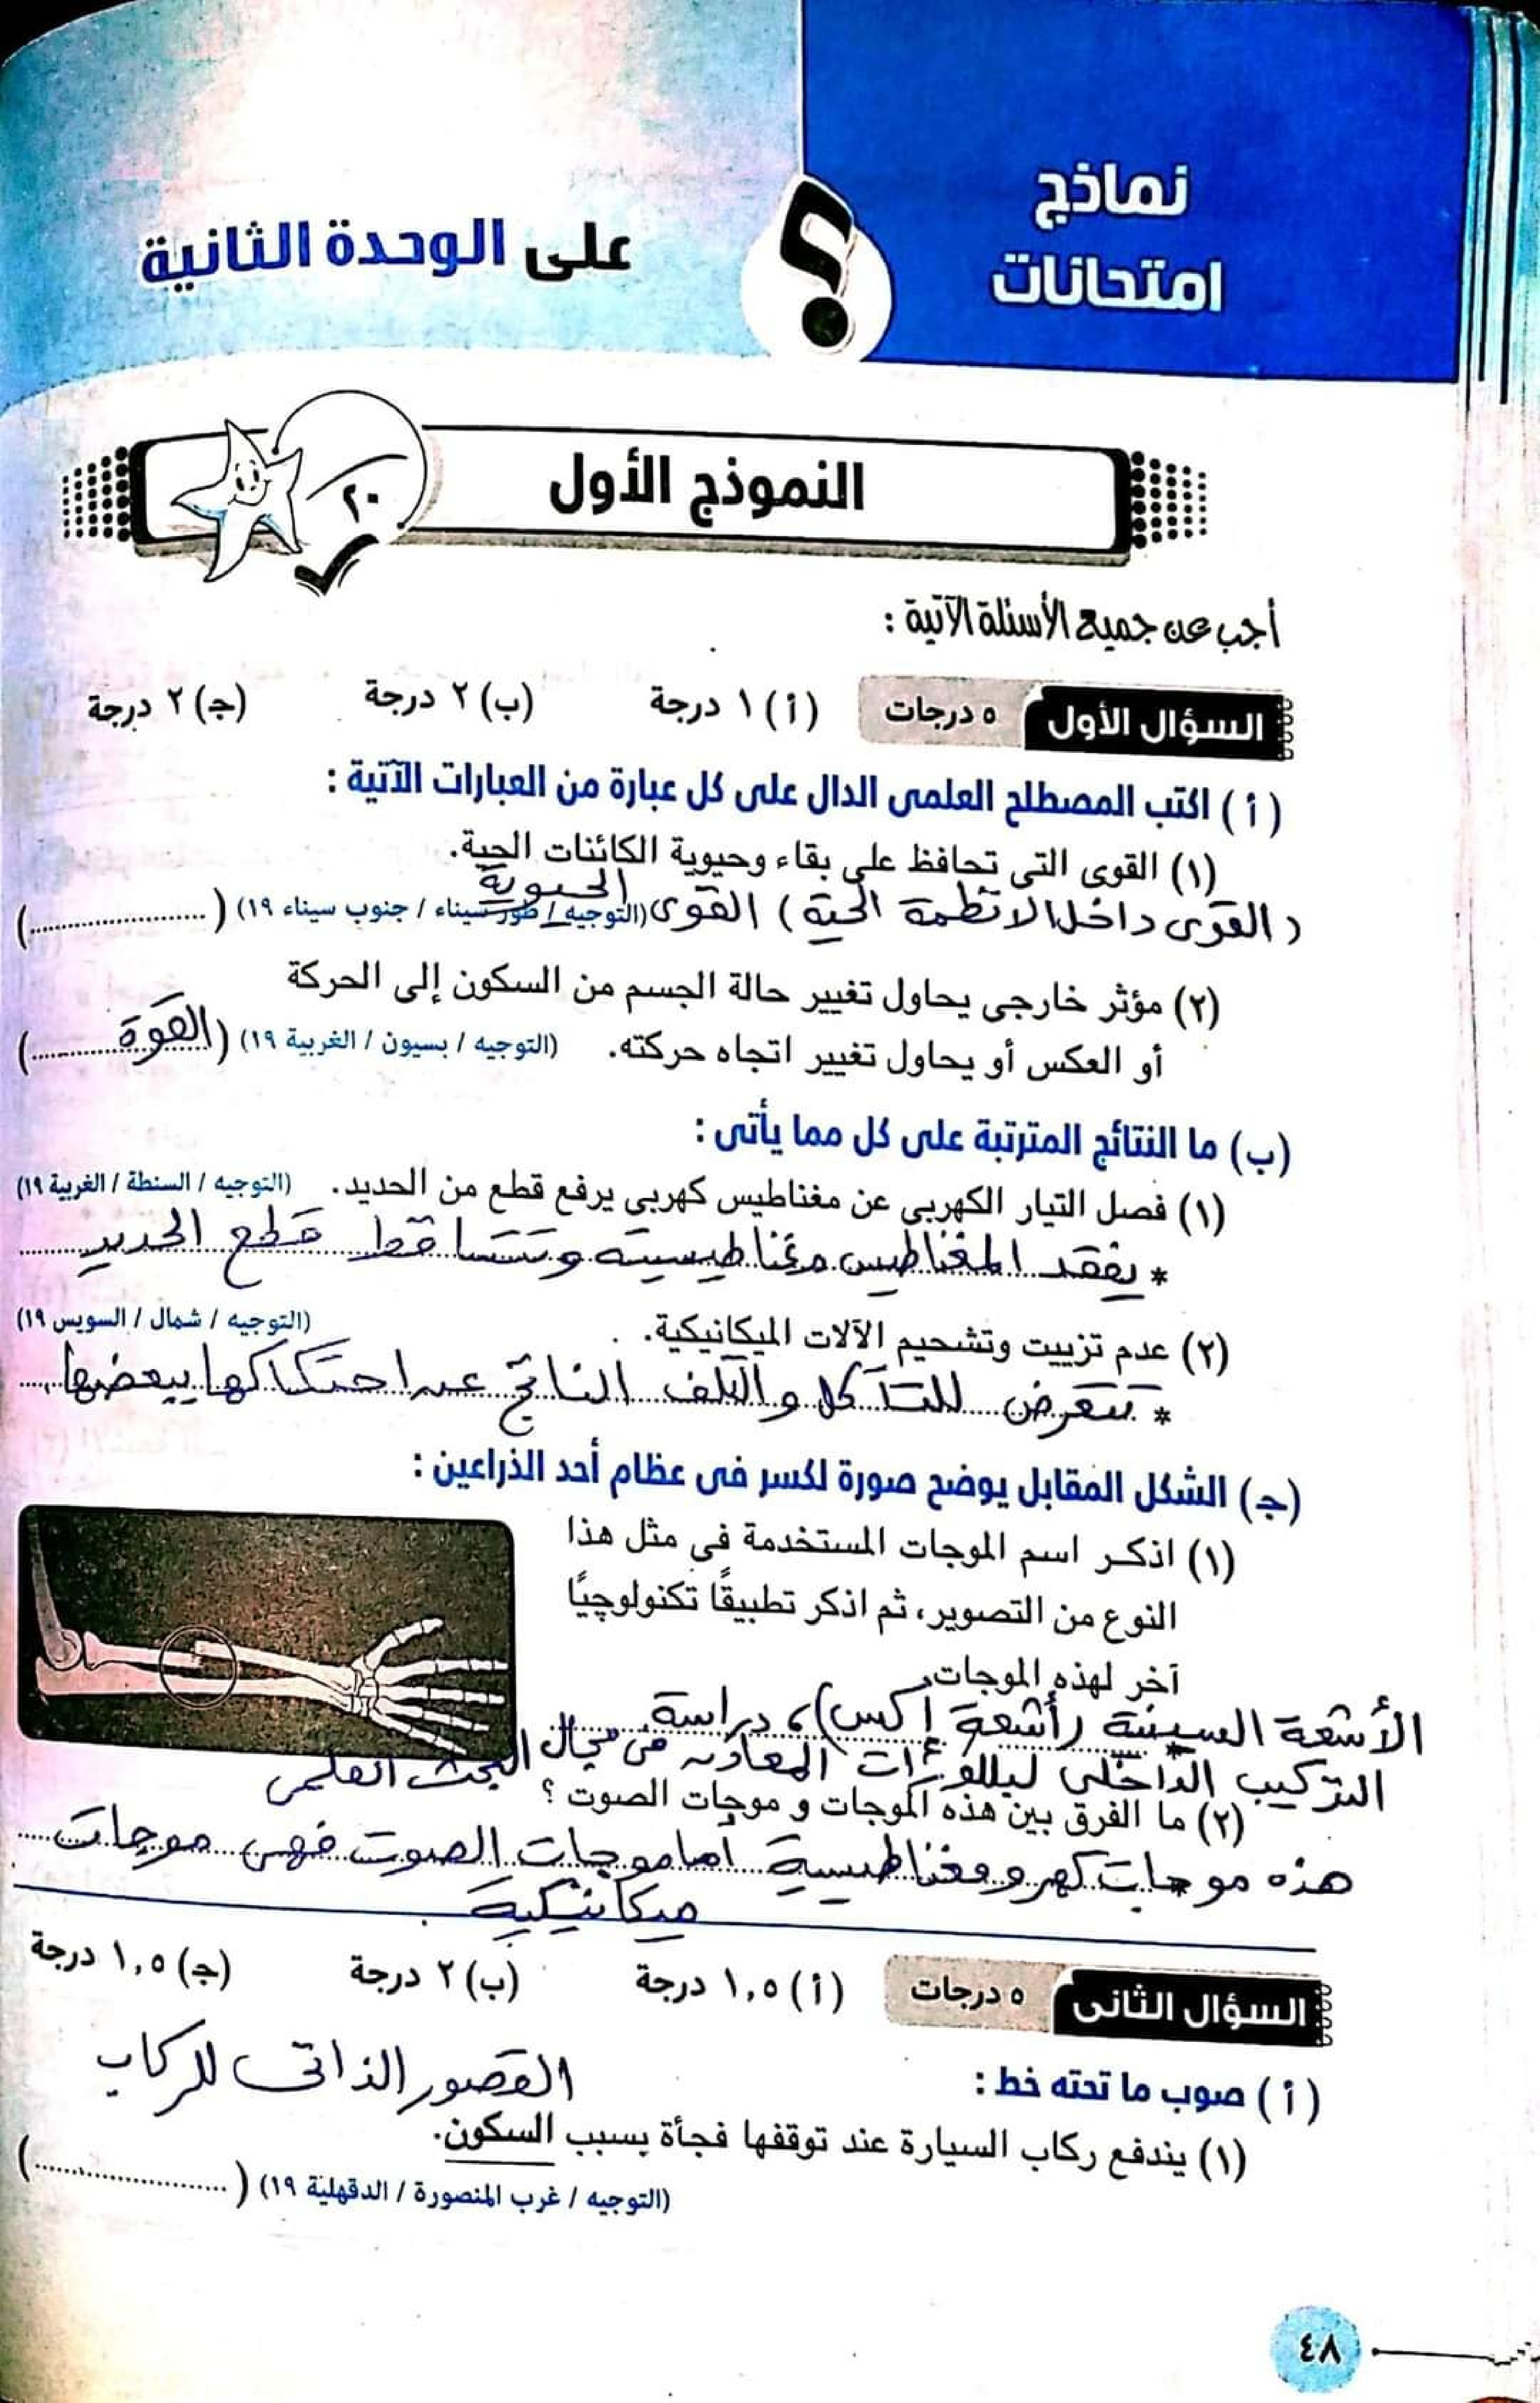 نماذج
امتحانات
؟
على الوحدة الثانية
النموذج الأول
٢٠
أجب عن جميع الأسئلة الآتية :
السؤال الأول ٥ درجات (أ) ١ درجة (ب) ٢ درجة (جـ) ٢ درجة
(أ) اكتب المصطلح العلمى الدال على كل عبارة من العبارات الآتية :
(١) القوى التى تحافظ على بقاء وحيوية الكائنات الحية.
(القوى داخل الانظمة الحية) القوى الحيوية (التوجيه / طور سيناء / جنوب سيناء ١٩) (....................)
(٢) مؤثر خارجى يحاول تغيير حالة الجسم من السكون إلى الحركة
أو العكس أو يحاول تغيير اتجاه حركته. (التوجيه / بسيون / الغربية ١٩) (القوة)
(ب) ما النتائج المترتبة على كل مما يأتى :
(١) فصل التيار الكهربى عن مغناطيس كهربى يرفع قطع من الحديد. (التوجيه / السنطة / الغربية ١٩)
* يفقد المغناطيس مغناطيسيته وتتساقط قطع الحديد
(٢) عدم تزييت وتشحيم الآلات الميكانيكية. (التوجيه / شمال / السويس ١٩)
* تتعرض للتآكل والتلف الناتج عن احتكاكها ببعضها
(جـ) الشكل المقابل يوضح صورة لكسر فى عظام أحد الذراعين :
(١) اذكر اسم الموجات المستخدمة فى مثل هذا
النوع من التصوير، ثم اذكر تطبيقًا تكنولوچيًا
آخر لهذه الموجات.
الأشعة السينية (أشعة إكس)، دراسة
التركيب الداخلى لبللورات المعادن فى مجال البحث العلمى
(٢) ما الفرق بين هذه الموجات و موجات الصوت ؟
هذه موجات كهرومغناطيسية أما موجات الصوت فهى موجات
ميكانيكية
السؤال الثانى ٥ درجات (أ) ١,٥ درجة (ب) ٢ درجة (جـ) ١,٥ درجة
(أ) صوب ما تحته خط :
القصور الذاتى للركاب
(١) يندفع ركاب السيارة عند توقفها فجأة بسبب السكون.
(التوجيه / غرب المنصورة / الدقهلية ١٩) (....................)
٤٨